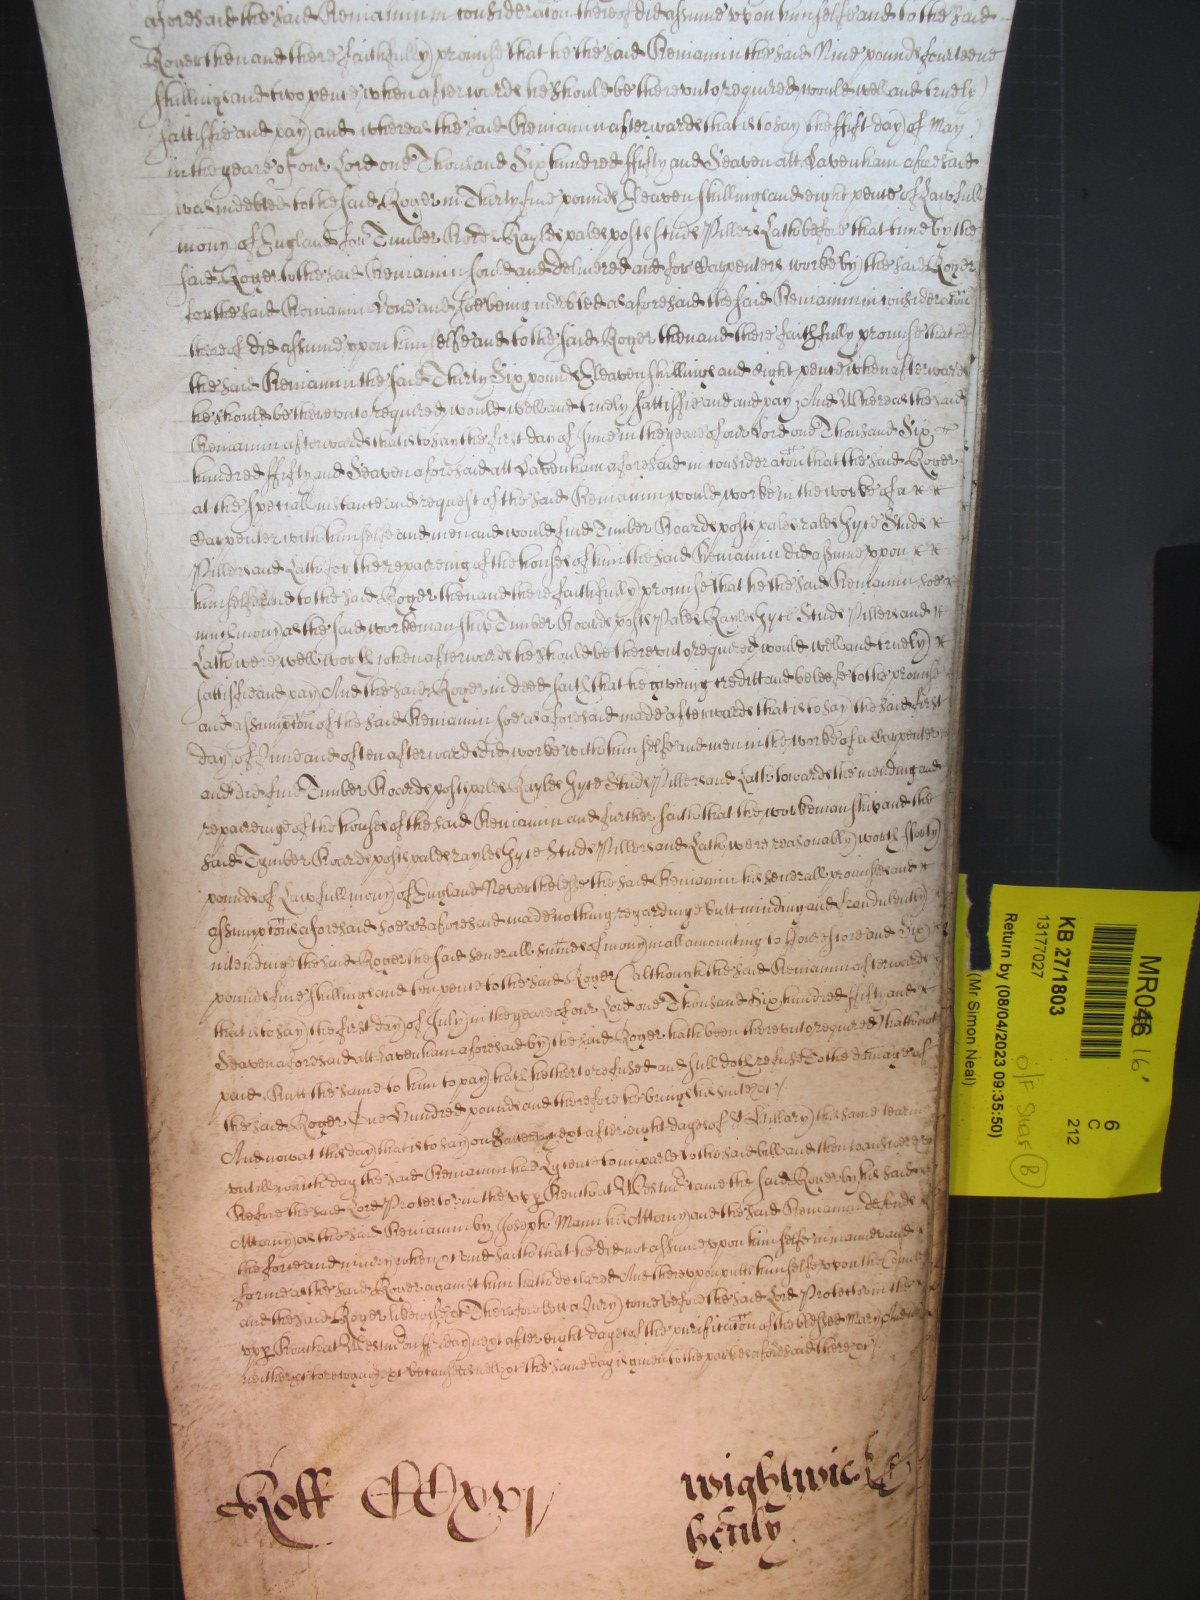 aforesaid the said Beniamin in consideracon thereof did assume vpon himselfe and to the said
Roger then and there faithfully promise that he the said Beniamin the said Nine pounds fourteene
shillings and two pence when afterwards he should be therevnto required would well and truely
sattisfie and pay And whereas the said Beniamin afterwards that is to say the first day of May
in the yeare of our Lord one Thousand Six hundred ffifty and Seaven att Lavenham aforesaid
was indebted to the said Roger in Thirty pounds Eleaven shillings and eight pence of Lawfull
mony of England for Timber Bords Rayles pales posts studs Pillers Lath before that time by the
said Roger to the said Beniamin sould and delivered and for Carpenters worke by the said Roger
for the said Beniamin done and soe being indebted as aforesaid the said Beniamin in consideracon
thereof did assume vpon himselfe and to the said Roger then and there faithfully promise that he
the said Beniamin the said Thirty Six pounds Eleaven shillings and eight pence when afterwards
he should be therevnto required would well and truely sattisfie and and pay And Whereas the said
Beniamin afterwards that is to say the first day of June in the yeare of our Lord one Thousand Six
hundred ffifty and Seaven aforesaid att Lavenham aforesaid in consideracon that the said Roger
at the speciall instance and request of the said Beniamin would worke in the worke of a
Carpenter with himselfe and men and would find Timber Boards posts pales rales Studs
Pillers and Lath for the repareing of the houses of him the said Beniamin did assume vpon
himselfe and to the said Roger then and there faithfully promise that he the said Beniamin soe
much mony as the said workemanship Timber Boards posts Pales Rayles Studs Pillers and
Lath were well worth when afterwards he should be therevnto required would well and truely
sattisfie and pay And the said Roger in deed saith that he giveing creditt and beleefe to the promise
and assumpcon of the said Beniamin soe as aforesaid made afterwards that is to say the said first
day of June and often afterwards did worke with himselfe and men in the worke of a Carpenter
and did find Timber Boards posts pales Rayles Studs Pillers and Lath towards the mending and
repareinge of the houses of the said Beniamin and further saith that the workemanship and the
said Tymber Boards posts pales rayles Studs Pillers and Lath were reasonably worth fforty
pounds of Lawfull mony of England Neverthelesse the said Beniamin his severall promises and
assumpcons aforesaid soe as aforesaid made nothing regardinge butt minding and fraudulently
intendinge the said Roger the said severall summes of mony in all amounting to ffourescore and Six
pounds five shillings and ten pence to the said Roger (although the said Beniamin afterwards
that is to say the first day of July in the yeare of our Lord one Thousand Six hundred ffifty and
Seaven aforesaid att Lavenham aforesaid by the said Roger hath been therevnto required) hath not
paid Butt the same to him to pay hath hitherto refused and still doth refuse To the damage of
the said Roger One Hundred pounds and therefore he brings his suite &c
And now at this day that is to say on next after eight dayes of St Hillary this same tearme
vntill which day the said Beniamin had Lycence to imparle to the said bill and then to answere &c
Before the said Lord Protector in the vpp Bench at Westmr came the said Roger by his said
Attorny as the said Beniamin by Joseph Mann his Attorny and the said Beniamin defends
the force and iniury when &c And saith that he did not assume vpon himselfe in manner and
forme as the said Roger against him hath declared And therevpon putts himselfe vpon the Country
and the said Roger likewise &c Therefore lett a Jury come before the said Lord Protector in the
vpp Bench at Westmr on ffriday next after eight dayes of the purificacon of the blessed Mary And who
neither &c to recognize &c because as well &c the same day is given to the partyes aforesaid there &c
Roff CCxvj
Wightwick
henly
MR046 16'
KB 27/1803
13177027
Return by (08/04/2023 09:35:50)
(Mr Simon Neal)
6
C
212
B